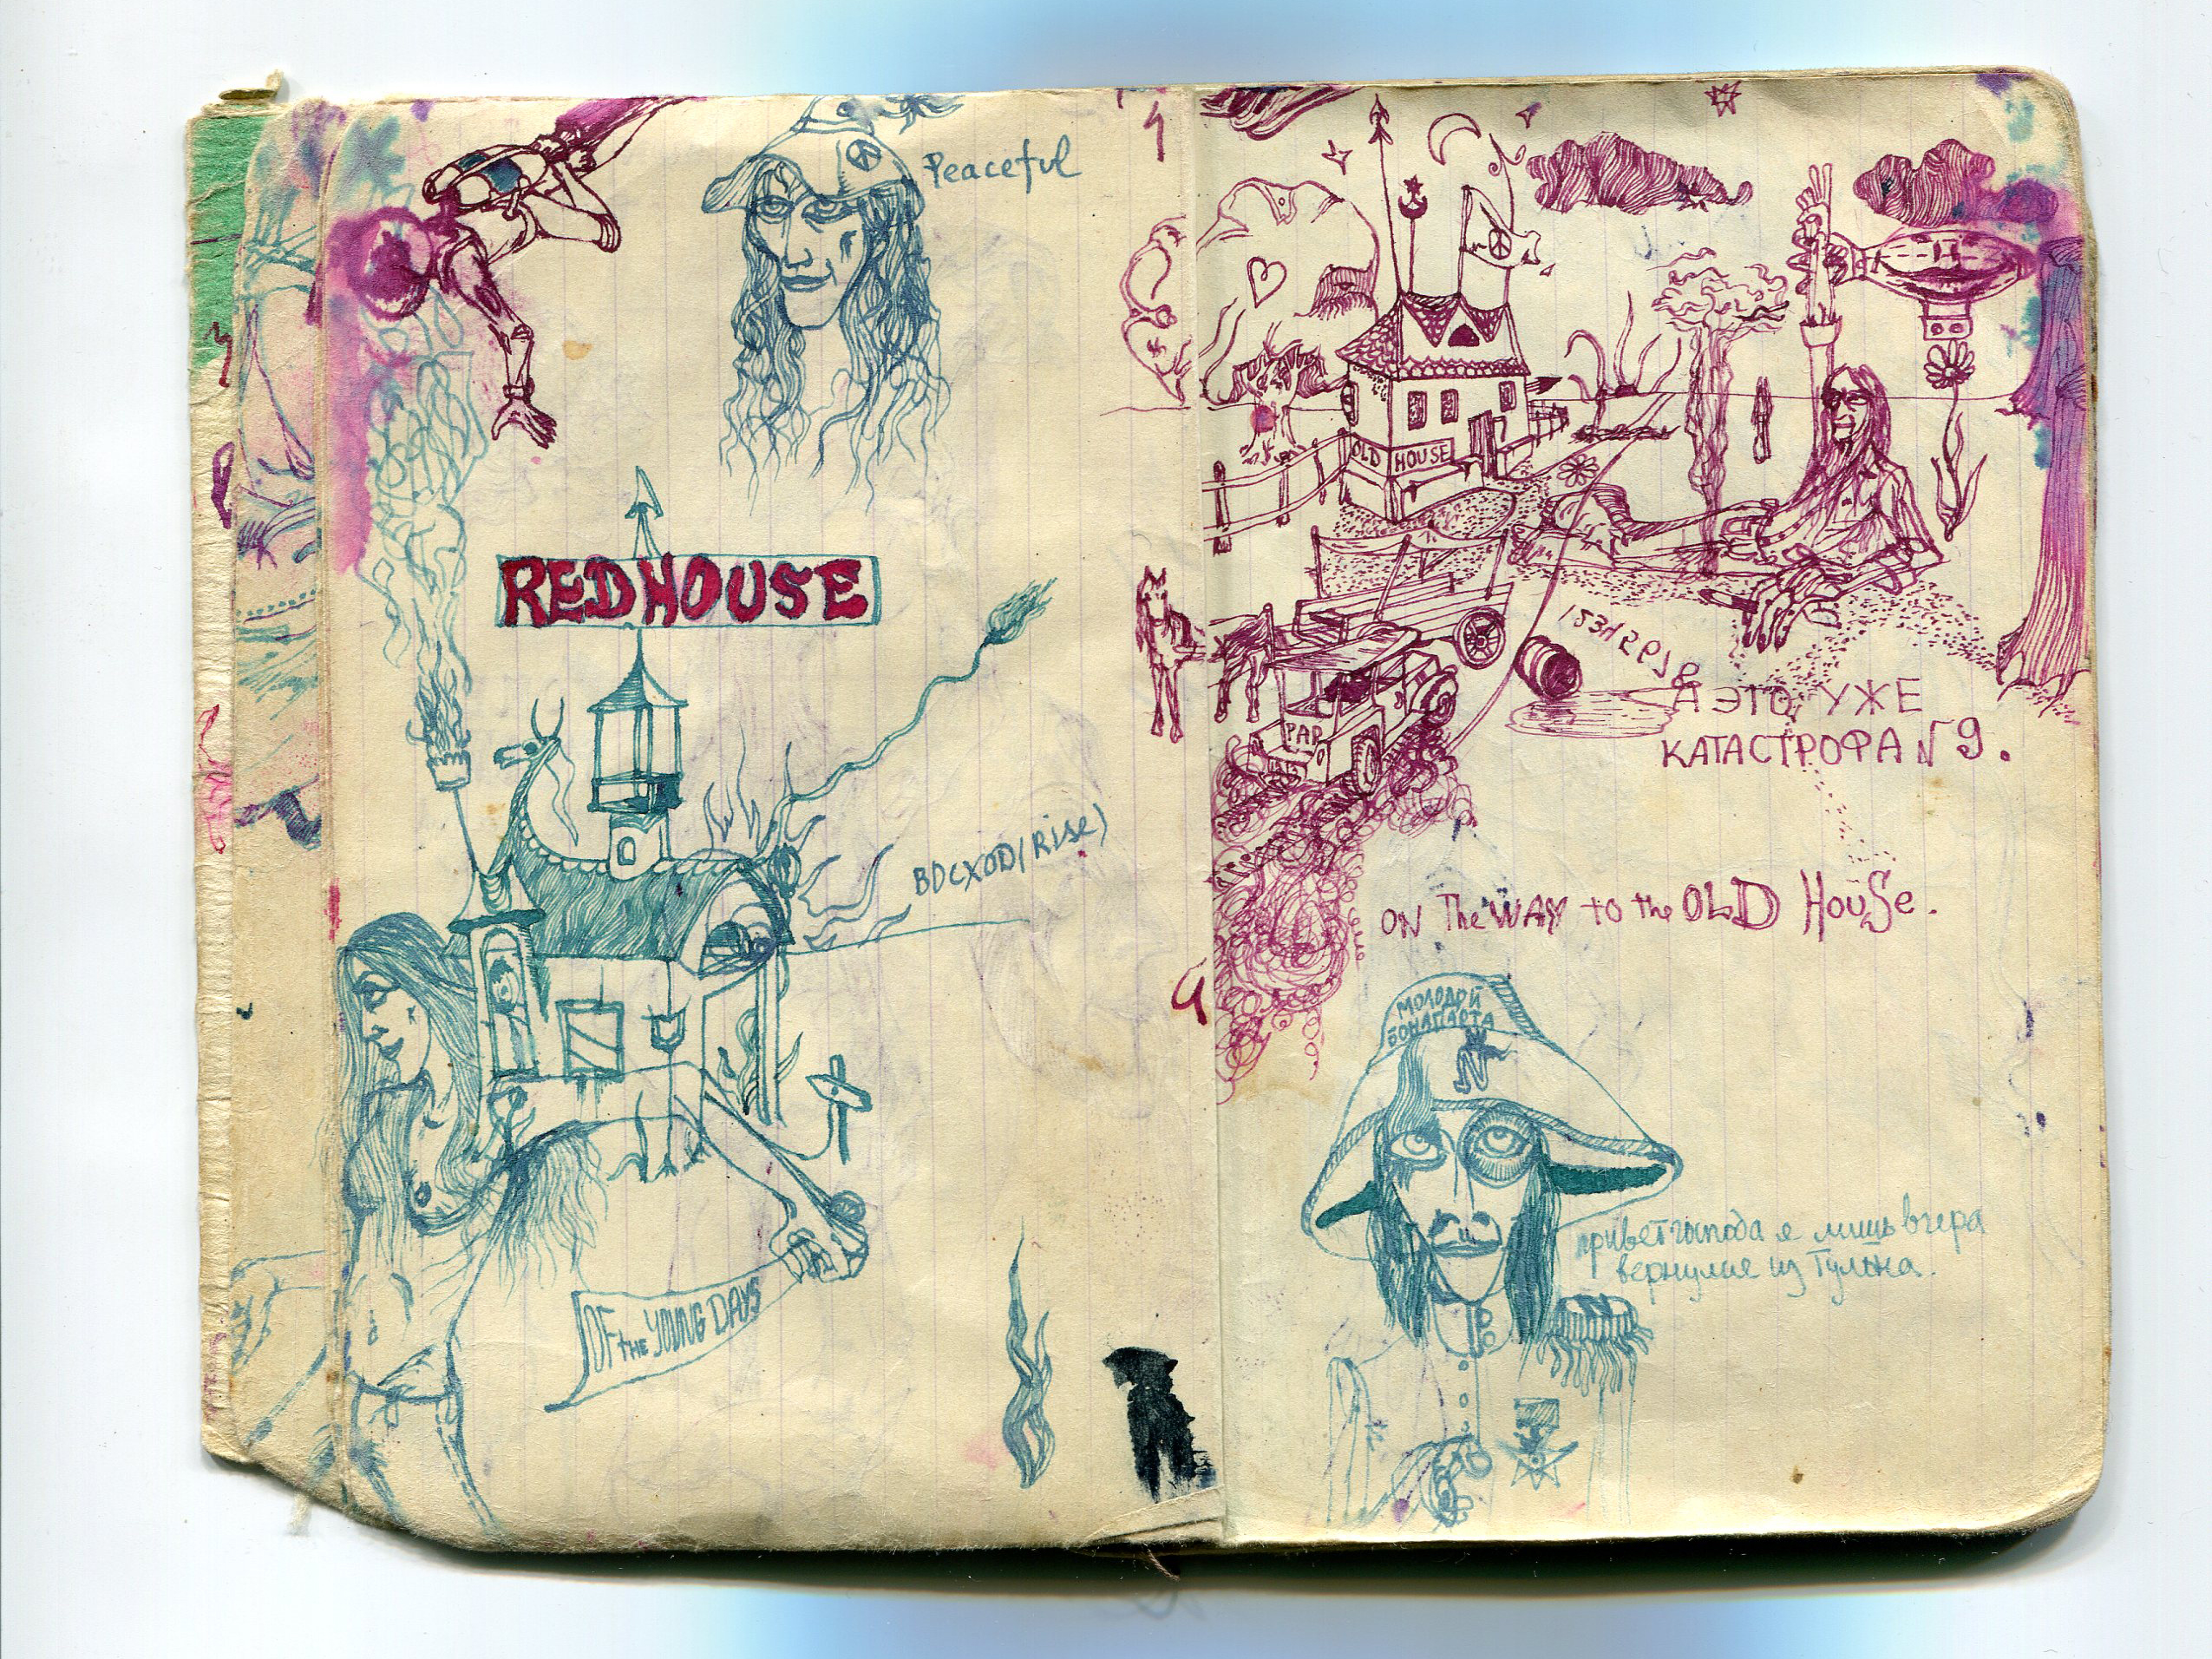 Peaceful
REDHOUSE
ВОСХОД (Rise)
OF the YOUNG DAYS
OLD HOUSE
PAP
А ЭТО УЖЕ
КАТАСТРОФА N 9.
ON The WAY to the OLD HOUSE.
МОЛОДОЙ
БОНАПАРТА
привет господа я лишь вчера
вернулся из Тулона.